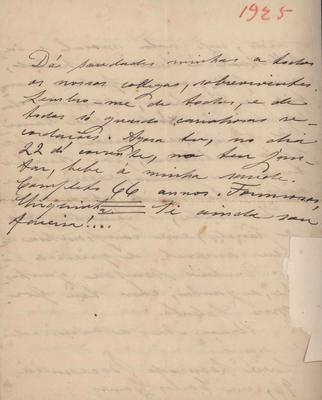 1925
Dá saudades minhas a todos
os nossos collegas, sobreviventes.
Lembro-me de todos, e de
todos só guardo carinhosas re-
cordações. Agora tu, no dia
22 do corrente, no teu jan-
tar, bebe a minha saude.
Completo 66 annos.
Te ainda sou